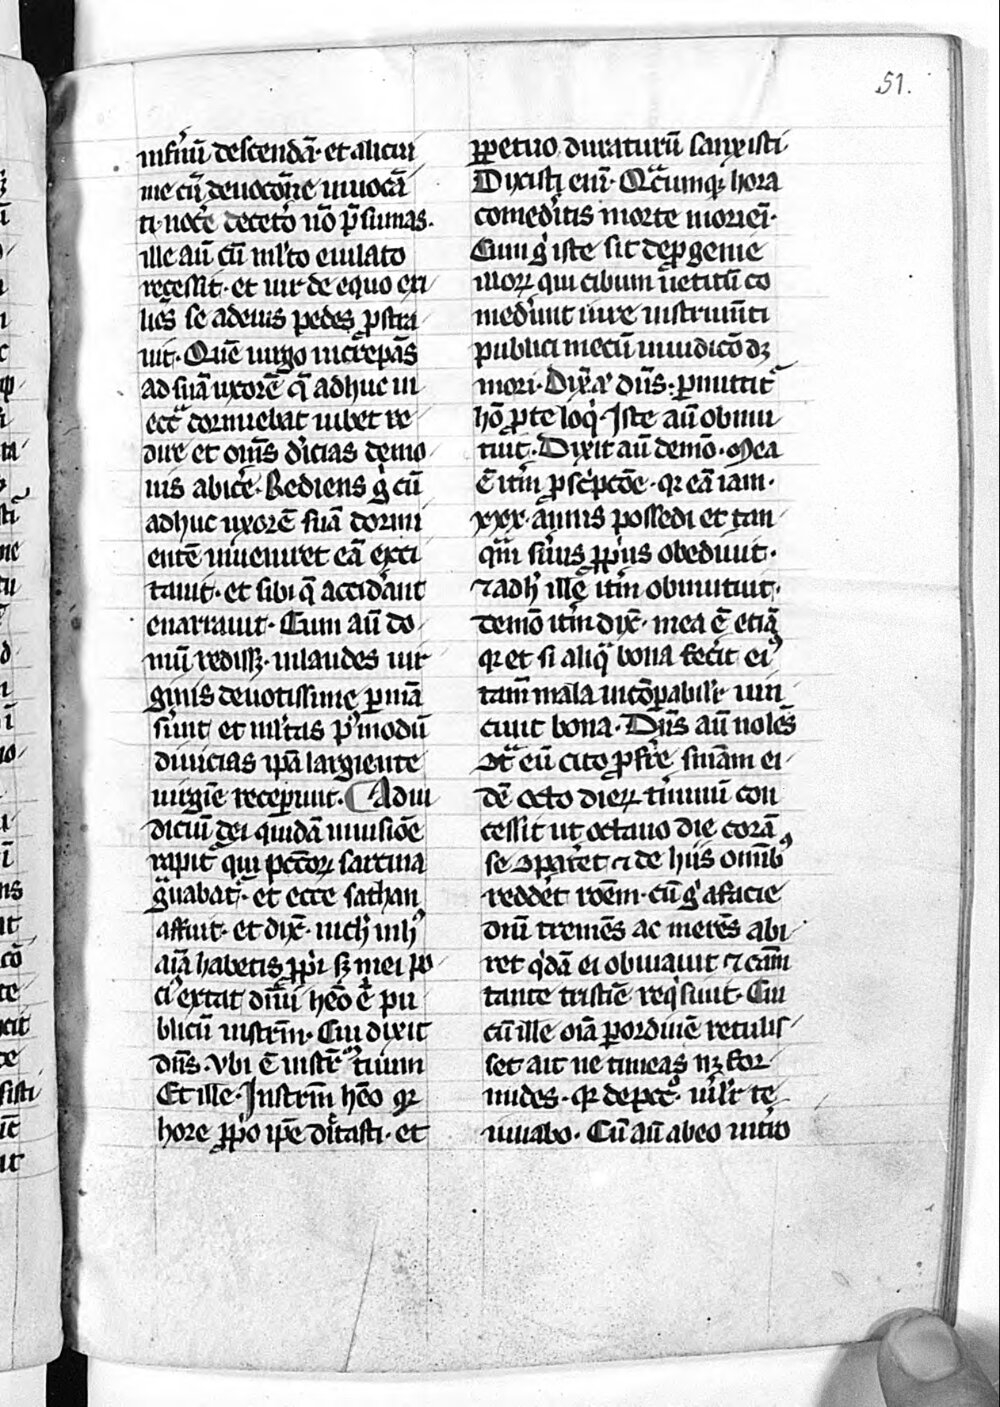 51.
infnū descendā· et alicui
me cū deuocōne inuocā
ti· noce͛ decet͛o nō p̄sumas·
ille aū cū ml'to eiulato
recessit· et uir de equo exi
liēs se ad eius pedes ꝓstra
uit· Quē uirgo inc͛repās
ad suā uxorē q̄ adhuc in
ecc̄ dormiebat iubet re
dire et om̄s diuicias demo
nis abic͛e· Rediens gͥ cū
adhuc uxorē suā dormi
entē inueniret eā exci
tauit· et sibi q̄ accid͛ant
enarrauit· Cum aū do
mū redissꝫ· in laudes uir
ginis deuotissime ꝑmā
s͛unt et ml'tas pꝰmodū
diuicias ip̄a largiente
uirgīe recep͛unt· Ad iu
diciū dei quidā in uisiōe
rapit͛ qui pccōꝝ sarcina
gͣuabat͛· et ecce sathan
affuit· et dix̄· nich' in hͦ
aīa habetis ꝓp͛i sꝫ mei po
ciꝰ extat dn̄ii hēo .n. pu
blicū instrm̄· Cui dixit
dn̄s· Vbi ē instr̄m tuum
Et ille· Instrm̄ hēo qr
hore ꝓp͛o ip̄e dictasti· et
ꝑpetuo duraturū sanxisti
Dixisti eni᷑· Qͣcumqꝫ hora
comed͛itis morte moriei᷑·
Cum gͥ iste sit de ꝓgenie
illoꝝ qui cibum uetitū co
med͛unt iure instrum̄ti
publici mecū iudicād·
mori· Dix̄ aͥ dn̄s· ꝑmittit᷑
hō ꝓ te loqͥ· Iste aū obmu
tuit· Dixit aū demō· Mea
ē itm̄ ꝓ sc͛pcōe· qr eā iam·
xxx· annis possedi et tan
qm̄ s͛uus ꝓp͛us obediuit·
⁊ adh' ille itm̄ obmutuit·
demō itm̄ dix̄· mea ē etiā
qr et si aliqͣ bona fecit eiꝰ
tam̄ mala incōpabilit͛ uin
cunt bona· Dn̄s aū nolēs
9tͣ eū cito ꝓferre snīam ei
dē octo dieꝝ t͛minū con
cessit ut octauo die corā
se 9paret ⁊ de hiis omībꝰ
redd͛et rōem· cū gͥ a facie
dn̄i tremēs ac merēs abi
ret qͥdā ei obuiauit ⁊ cām
tante tristiē reqͥsiuit· Cui
cū ille oīa ꝑ ordinē retulis
set ait ne timeas nꝫ for
mides· qr de pccͦ· uirilit͛ te
iuuabo· Cū aū ab eo nūc